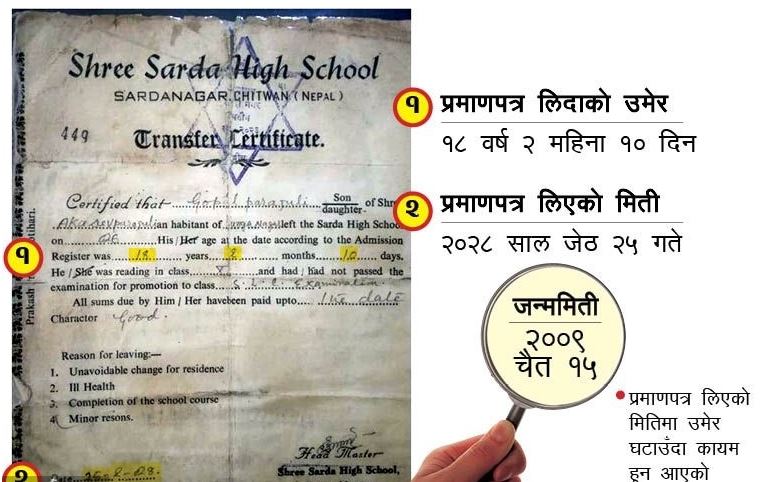 Shree Sarda High School
SARDANAGAR, CHITWAN (NEPAL)
449
Transfer Certificate.
Certified that Gopal parajuli Son daughter of Shr
an habitant of left the Sarda High School
on His/Her age at the date according to the Admission
Register was 18 years 2 months 10 days.
He / She was reading in class X and had / had not passed the
examination for promotion to class S.L.C. Examination
All sums due by Him / Her havebeen paid upto date
Charactor Good
Reason for leaving:—
1. Unavoidable change for residence
2. Ill Health
3. Completion of the school course
4. Minor resons.
Head Master
Shree Sarda High School,
Prakash
१
२
१ प्रमाणपत्र लिदाको उमेर
१८ वर्ष २ महिना १० दिन
२ प्रमाणपत्र लिएको मिती
२०२८ साल जेठ २५ गते
जन्ममिती
२००९
चैत १५
• प्रमाणपत्र लिएको
मितिमा उमेर
घटाउँदा कायम
हुन आएको